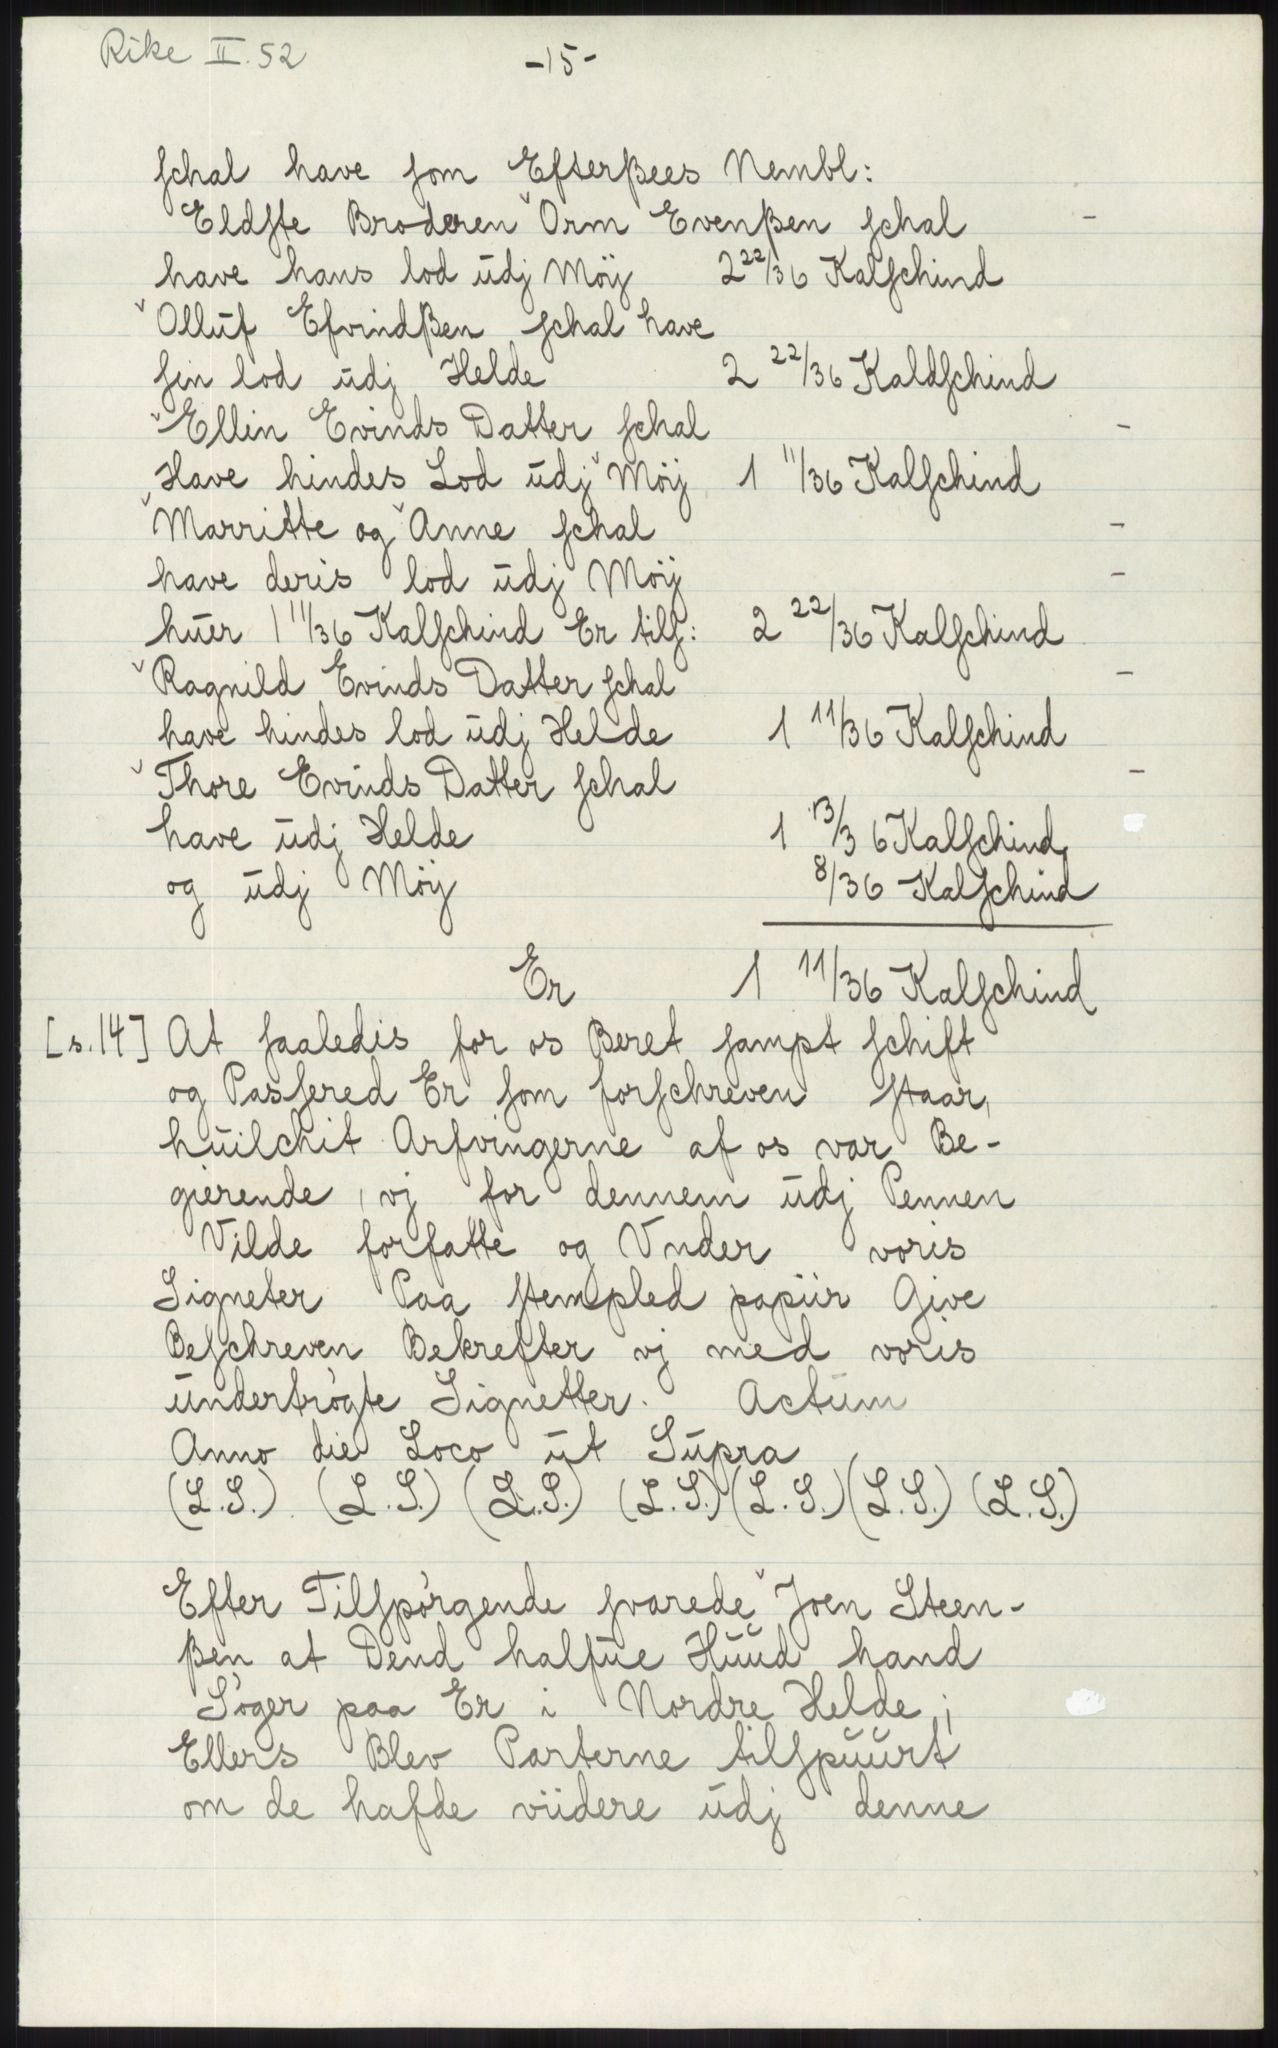 Rike II. 52
-15-
schal have som Efterßees Nembl:
Eldste Broderen ˇOrm Evenßen schal -
have hans lod üdj Möÿ 2 22/36 Kalschind
ˇOllüf Efvindßen schal have
sin lod üdj Helde 2 22/36 Kaldschind
ˇEllin Evinds Datter schal -
Have hindes Lod üdj ˇMöÿ 1 11/36 Kalschind
ˇMarritte og ˇAnne schal -
have deris lod üdj Möÿ -
hüer 1 11/36 Kalschind Er tils: 2 22/36 Kalschind
ˇRagnild Evinds Datter schal -
have hindes lod üdj Helde 1 11/36 Kalschind
ˇThore Evinds Datter schal -
have üdj Helde 1 13/36 Kalschind,
og üdj Möÿ 8/36 Kalschind
Er 1 11/36 Kalschind
[s.14] At saaledis for os Beret sampt schift
og Passered Er som forschreven staar,
hüilchit Arfvingerne af os var Be-
gierende, vj for dennem üdj Pennen
Vilde forfatte og Vnder voris
Signeter Paa stempled papiir Give
Beschreven Bekrefter vj med voris
ündertrögte Signetter. Actüm
Anno die Loco üt Süpra
(L.S.) (L.S.) (L.S.) (L.S.) (L.S.) (L.S.) (L.S.)
Efter Tilspörgende svarede ˇJoen Steen-
ßen at Dend halfüe Hüüd hand
Söger paa Er i Nordre Helde;
Ellers Blev Parterne tilspüürt
om de hafde viidere üdj denne